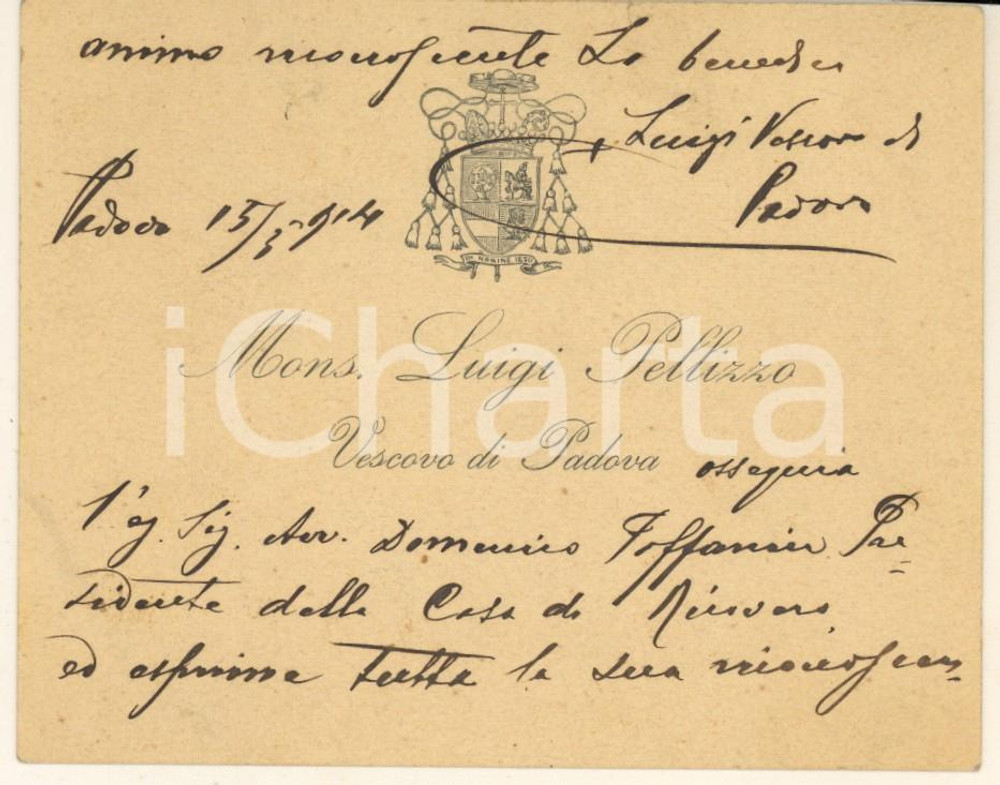 animo riconoscente La benedice
Luigi Vescovo di
Padova
Padova 15/3 914
IN NOMINE IESU
Mons. Luigi Pellizzo
Vescovo di Padova
ossequia
l'eg. Sig. Avv. Domenico Toffanin Pre=
sidente della Casa di Ricovero
ed esprime tutta la sua riconoscen=
iCharta